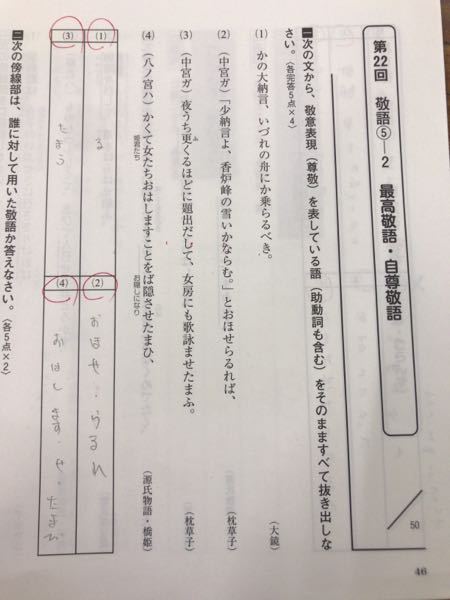 第22回 敬語⑤―2 最高敬語・自尊敬語
50
一 次の文から、敬意表現（尊敬）を表している語（助動詞も含む）をそのまますべて抜き出しな
さい。〈各完答5点×4〉
(1) かの大納言、いづれの舟にか乗らるべき。 （大鏡）
(2) （中宮ガ）「少納言よ、香炉峰の雪いかならむ。」とおほせらるれば、 （枕草子）
(3) （中宮ガ）夜うち更くるほどに題出だして、女房にも歌詠ませたまふ。 （枕草子）
ふ
(4) （八ノ宮ハ）かくて女たちおはしますことをば隠させたまひ、 （源氏物語・橋姫）
姫君たち
お隠しになり
(1) る
(2) おほせ・らるれ
(3) たまう
(4) おはします・せ・たまひ
二 次の傍線部は、誰に対して用いた敬語か答えなさい。〈各5点×2〉
46